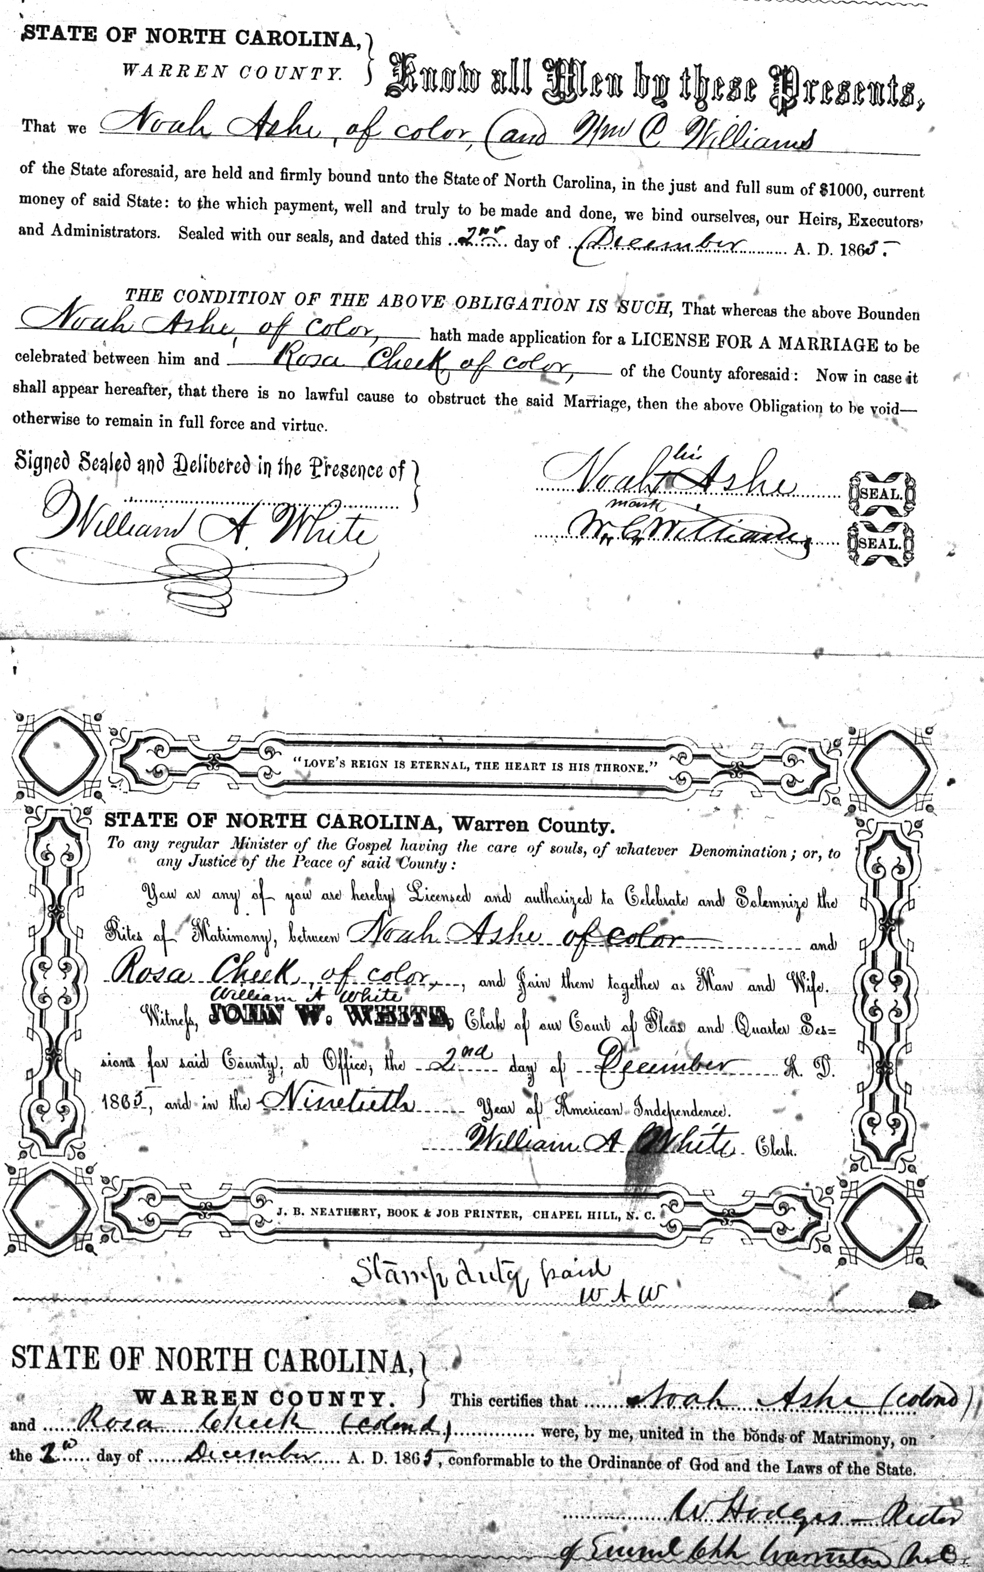 STATE OF NORTH CAROLINA,
WARREN COUNTY.
Know all Men by these Presents,
That we Noah Ashe, of color, (and Wm C Williams
of the State aforesaid, are held and firmly bound unto the State of North Carolina, in the just and full sum of $1000, current
money of said State: to the which payment, well and truly to be made and done, we bind ourselves, our Heirs, Executors,
and Administrators. Sealed with our seals, and dated this 2nd day of December A. D. 1865.
THE CONDITION OF THE ABOVE OBLIGATION IS SUCH, That whereas the above Bounden
Noah Ashe, of color, hath made application for a LICENSE FOR A MARRIAGE to be
celebrated between him and Rosa Cheek, of color, of the County aforesaid: Now in case it
shall appear hereafter, that there is no lawful cause to obstruct the said Marriage, then the above Obligation to be void—
otherwise to remain in full force and virtue.
Signed Sealed and Delivered in the Presence of
his
Noah + Ashe SEAL.
mark
William A. White
W. C. Williams SEAL.
"LOVE'S REIGN IS ETERNAL, THE HEART IS HIS THRONE."
STATE OF NORTH CAROLINA, Warren County.
To any regular Minister of the Gospel having the care of souls, of whatever Denomination; or, to
any Justice of the Peace of said County:
You or any of you are hereby Licensed and authorized to Celebrate and Solemnize the
Rites of Matrimony, between Noah Ashe of color and
Rosa Cheek, of color, and Join them together as Man and Wife.
William A White
Witness, JOHN W. WHITE, Clerk of our Court of Pleas and Quarter Ses=
sions for said County, at Office, the 2nd day of December A. D.
1865, and in the Ninetieth Year of American Independence.
William A. White Clerk.
J. B. NEATHERY, BOOK & JOB PRINTER, CHAPEL HILL, N. C.
Stamp duty paid
W A W
STATE OF NORTH CAROLINA,
WARREN COUNTY.
This certifies that Noah Ashe (colord)
and Rosa Cheek (colord) were, by me, united in the bonds of Matrimony, on
the 2nd day of December A. D. 1865, conformable to the Ordinance of God and the Laws of the State.
W Hodges - Rector
of Emml Chh Warrenton N. C.